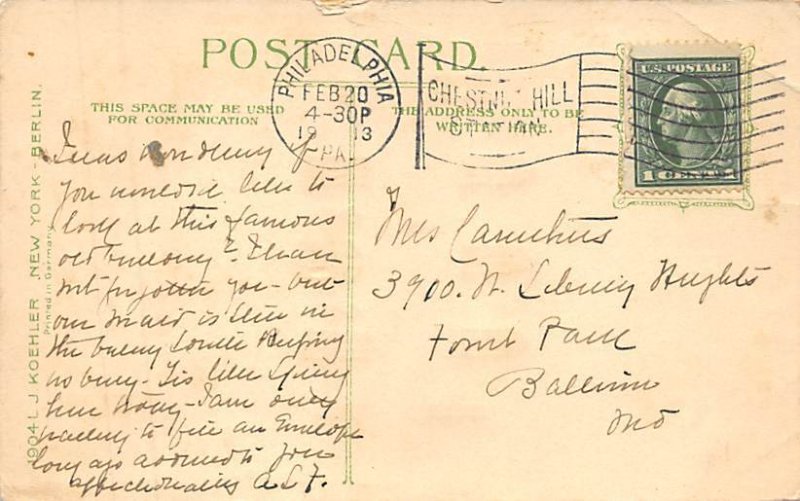 POST CARD
THIS SPACE MAY BE USED
FOR COMMUNICATION
THE ADDRESS ONLY TO BE
WRITTEN HERE.
PHILADELPHIA
FEB 20
4-30P
19 13
PA.
CHESTNUT HILL
STATION
U.S. POSTAGE
1 CENT
1904 L J KOEHLER, NEW YORK - BERLIN.
Printed in Germany
I was wondering if
you would like to
look at this famous
old building? I have
not forgotten you - but
our maid is
the
busy - like
her I am only
waiting to an Envelope
long ago addressed to you
affectionately A.L.F.
Mrs Carruthers
3900. W. Liberty Heights
Forest Park
Baltimore
Md